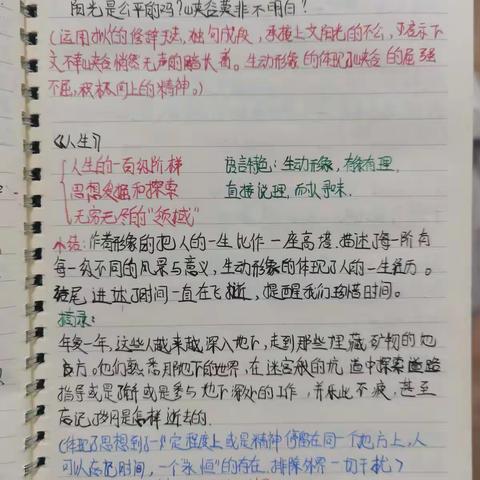 阳光是公平的吗？峡谷莫非不明白？
（运用拟人的修辞手法，独句成段，承接上文阳光的不公，又启示下
文不幸峡谷悄然无声的酷长着。生动形象的体现了峡谷的屈强
不屈，积极向上的精神。）
《人生》
人生的一百级阶梯 语言特色：生动形象，有条有理，
思想发掘和探索 直接说理，而耐寻味。
无穷无尽的“领域”
小结：作者形象的把人的一生比作一座高塔，描述了每一阶有
每一级不同的风景与意义，生动形象的体现了人的一生经历。
结尾进述了时间一直在飞逝，提醒我们珍惜时间。
摘录：
年复一年，这些人越来越深入地下，走到那些埋藏矿物的地
方。他们熟悉那地下的世界，在迷宫般的坑道中探索道路
指导或是了解或是参与地下深处的工作，并乐此不疲，甚至
忘记了岁月是怎样逝去的。
（体现了思想到了一定程度上或是精神停留在同一个地方上，人
可以忘记时间，一个“永恒”的存在，排除外界一切干扰）